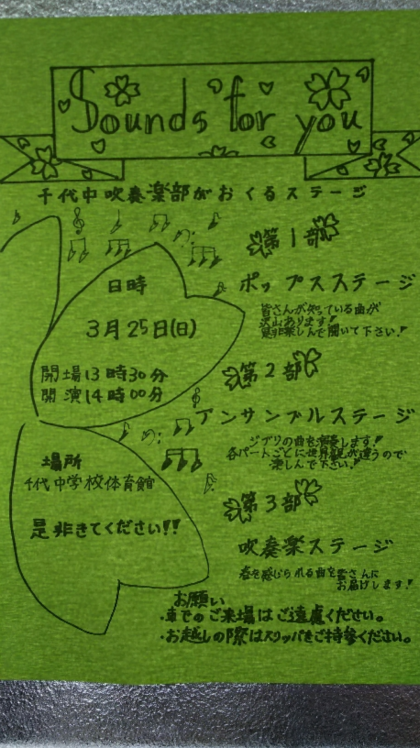 Sounds for you
千代中吹奏楽部がおくるステージ
日時
3月25日(日)
開場13時30分
開演14時00分
場所
千代中学校体育館
是非きてください!!
第1部
ポップスステージ
皆さんが知っている曲が
沢山あります!!
是非楽しんで聞いて下さい!!
第2部
アンサンブルステージ
ジブリの曲を演奏します!!
各パートごとに世界観が違うので
楽しんで下さい!!
第3部
吹奏楽ステージ
春を感じられる曲を皆さんに
お届けします!!
お願い
・車でのご来場はご遠慮ください。
・お越しの際はスリッパをご持参ください。